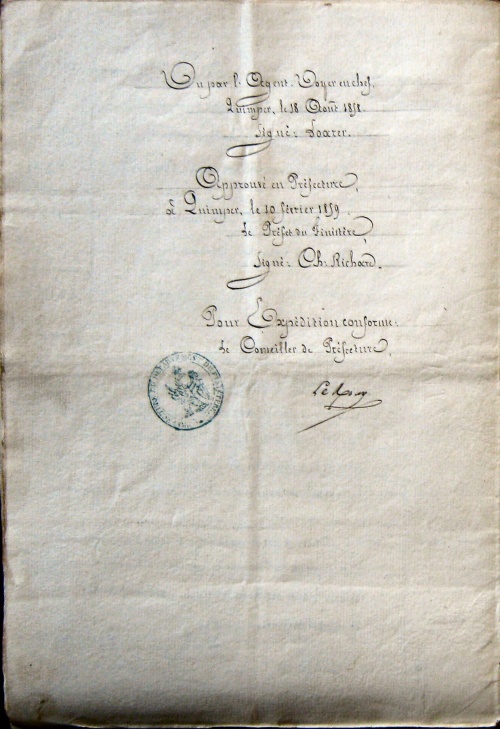 Vu par l'Agent-Voyer en chef,
Quimper, le 18 Août 1858
Signé: Soarer.
Approuvé en Préfecture,
à Quimper, le 10 février 1859.
Le Préfet du Finistère,
Signé: Ch: Richard.
Pour Expédition conforme:
Le Conseiller de Préfecture,